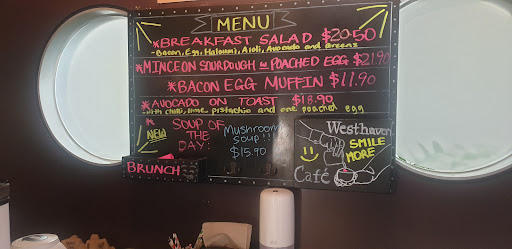 MENU
*BREAKFAST SALAD $20.50
-Bacon, Egg, Haloumi, Aioli, Avocado and Greens
*MINCE ON SOURDOUGH w POACHED EGG $21.90
*BACON EGG MUFFIN $11.90
*AVOCADO ON TOAST $18.90
-with chilli, lime, pistachio and one poached egg
*
NEW
SOUP OF
THE
DAY:
Mushroom
soup!!!
$15.90
Westhaven
SMILE
MORE
Café
BRUNCH